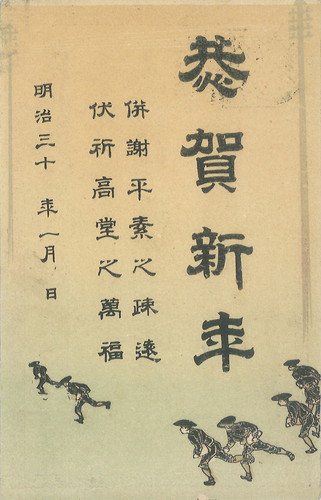 恭賀新年
併謝平素之疎遠
伏祈高堂之萬福
明治三十 年一月 日